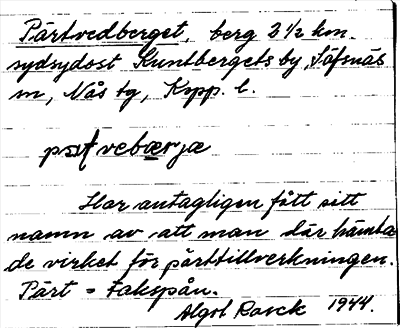 Pärtvedberget, berg 3 1/2 km.
sydsydost Kuntbergets by, Säfsnäs
sn, Nås tg, Kopp. l.
Har antagligen fått sitt
namn av att man där hämta
de virket för pärttillverkningen.
Pärt = Takspån.
Algot Rarck 1944.